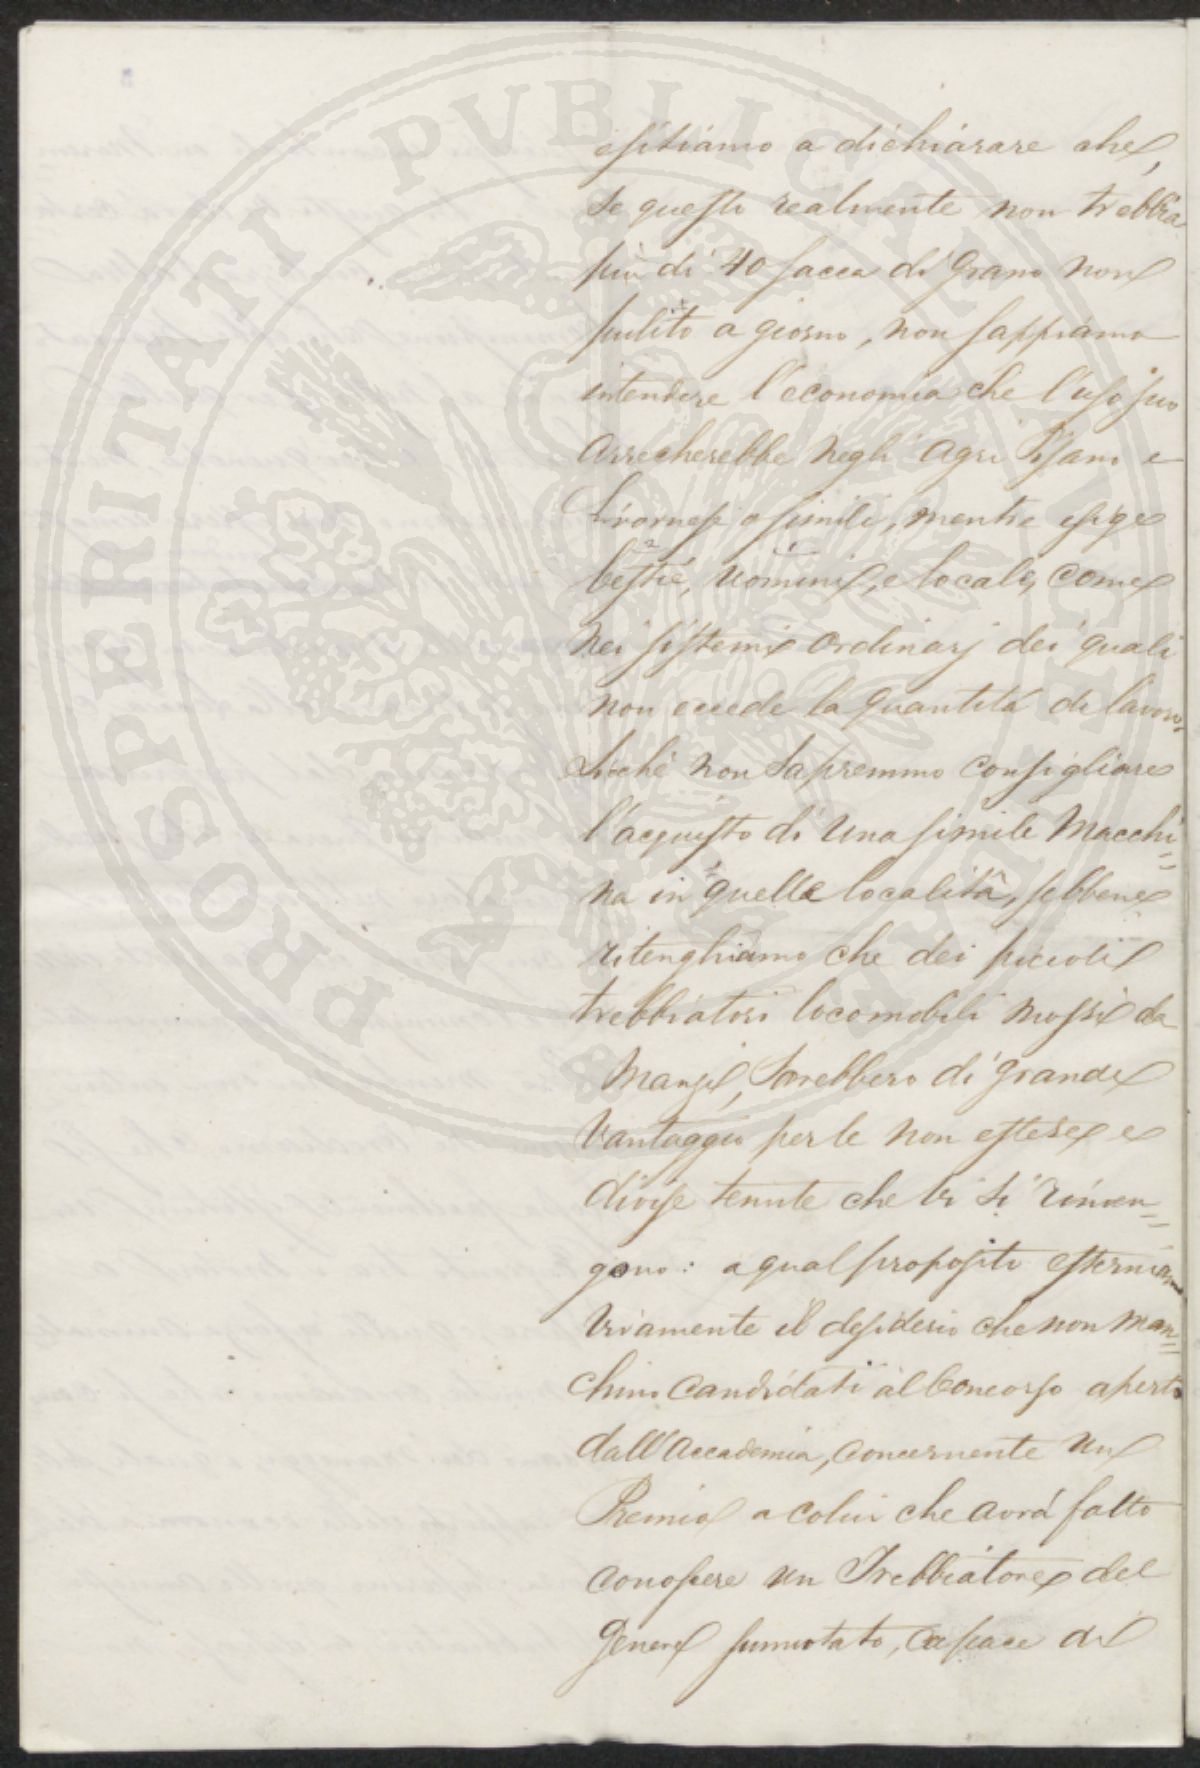 PROSPERITATI PUBLICAE AUGENDAE
esitiamo a dichiarare che,
se questi realmente non trebbia
più di 40 sacca di grano non
pulito a giorno, non sappiamo
intendere l'economia che l'uso suo
arrecherebbe negli agri Pisano e
Livornese o simili, mentre esige
bestie, uomini, e locale, come
nei sistemi ordinarj dei quali
non eccede la quantità di lavoro.
Sicché non sapremmo consigliare
l'acquisto di una simile Macchi=
na in quelle località, sebbene
ritenghiamo che dei piccoli
trebbiatori locomobili mossi da
Manzi, sarebbero di grande
vantaggio per le non estese e
divise tenute che vi si rinven=
gono: a qual proposito esterniamo
vivamente il desiderio che non man=
chino candidati al Concorso aperto
dall'Accademia, concernente un
Premio a colui che avrà fatto
conoscere un Trebbiatore del
genere sumistato, capace di